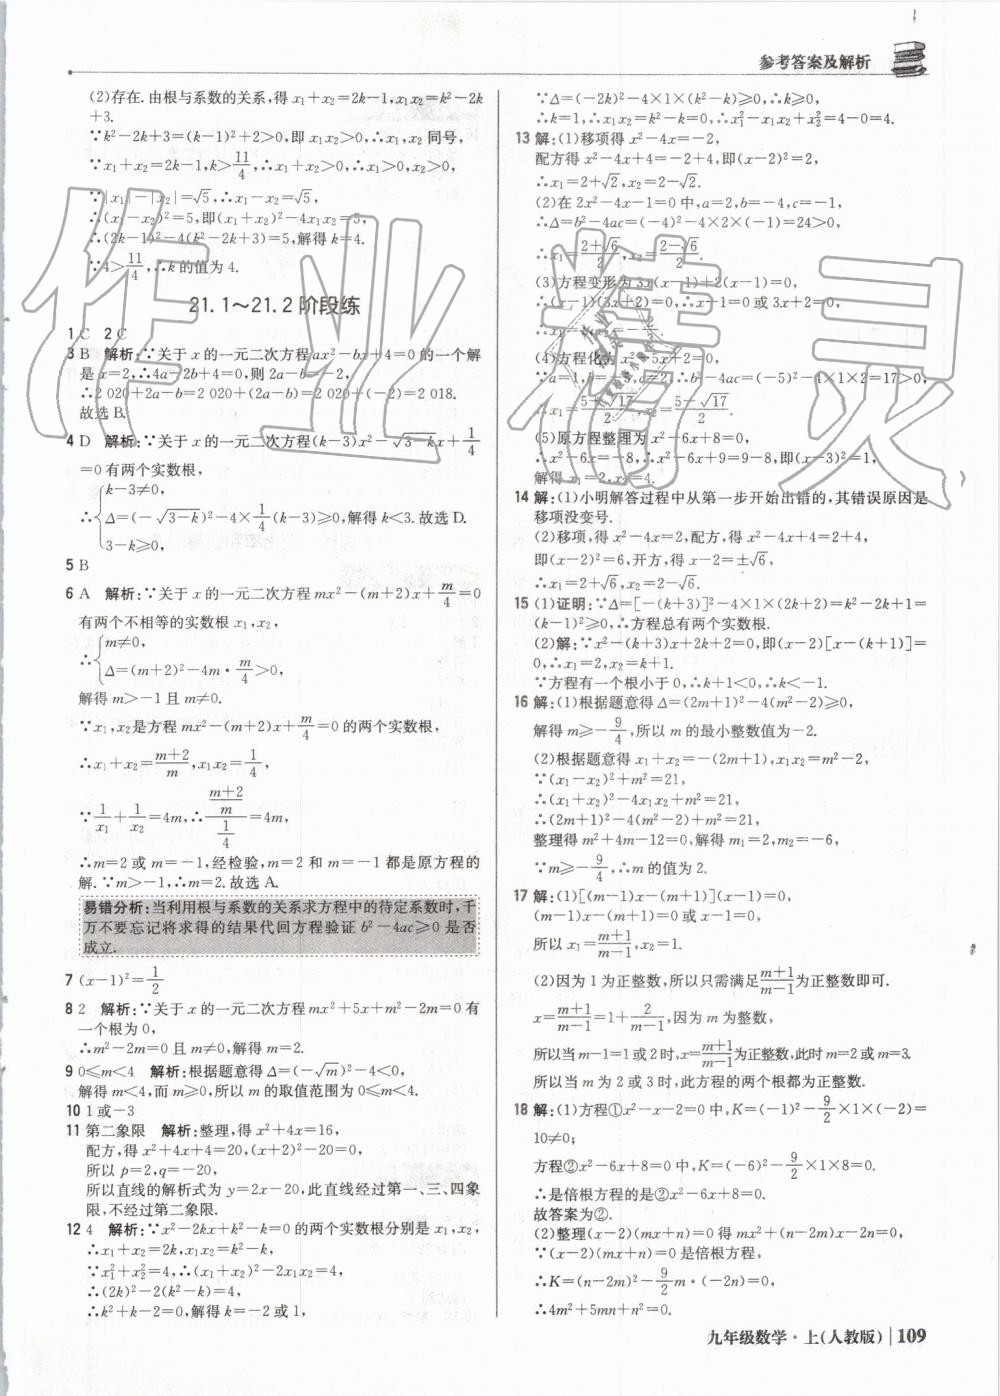 参考答案及解析
(2)存在.由根与系数的关系,得x₁+x₂=2k-1,x₁x₂=k²-2k
+3.
∵k²-2k+3=(k-1)²+2>0,即x₁x₂>0,∴x₁,x₂同号,
∵x₁+x₂=2k-1,k>11/4,∴x₁+x₂>0,∴x₁>0,x₂>0,
∵|x₁|-|x₂|=√5,∴x₁-x₂=√5,
∴(x₁-x₂)²=5,即(x₁+x₂)²-4x₁x₂=5,
∴(2k-1)²-4(k²-2k+3)=5,解得k=4.
∵4>11/4,∴k的值为4.
21.1～21.2阶段练
1 C 2 C
3 B 解析:∵关于x的一元二次方程ax²-bx+4=0的一个解
是x=2,∴4a-2b+4=0,则2a-b=-2,
∴2 020+2a-b=2 020+(2a-b)=2 020+(-2)=2 018.
故选B.
4 D 解析:∵关于x的一元二次方程(k-3)x²-√(3-k)x+1/4
=0有两个实数根,
∴{k-3≠0,
Δ=(-√(3-k))²-4×1/4(k-3)≥0,解得k<3.故选D.
3-k≥0,
5 B
6 A 解析:∵关于x的一元二次方程mx²-(m+2)x+m/4=0
有两个不相等的实数根x₁,x₂,
∴{m≠0,
Δ=(m+2)²-4m·m/4>0,
解得m>-1且m≠0.
∵x₁,x₂是方程mx²-(m+2)x+m/4=0的两个实数根,
∴x₁+x₂=(m+2)/m,x₁x₂=1/4,
∵1/x₁+1/x₂=4m,∴((m+2)/m)/(1/4)=4m,
∴m=2或m=-1,经检验,m=2和m=-1都是原方程的
解.∵m>-1,∴m=2.故选A.
易错分析:当利用根与系数的关系求方程中的待定系数时,千
万不要忘记将求得的结果代回方程验证b²-4ac≥0是否
成立.
7 (x-1)²=1/2
8 2 解析:∵关于x的一元二次方程mx²+5x+m²-2m=0有
一个根为0,
∴m²-2m=0且m≠0,解得m=2.
9 0≤m<4 解析:根据题意得Δ=(-√m)²-4<0,
解得m<4,而m≥0,所以m的取值范围为0≤m<4.
10 1或-3
11 第二象限 解析:整理,得x²+4x=16,
配方,得x²+4x+4=20,(x+2)²-20=0,
所以p=2,q=-20,
所以直线的解析式为y=2x-20,此直线经过第一、三、四象
限,不经过第二象限.
12 4 解析:∵x²-2kx+k²-k=0的两个实数根分别是x₁,x₂,
∴x₁+x₂=2k,x₁x₂=k²-k,
∵x₁²+x₂²=4,∴(x₁+x₂)²-2x₁x₂=4,
∴(2k)²-2(k²-k)=4,
∴k²+k-2=0,解得k=-2或1,
∵Δ=(-2k)²-4×1×(k²-k)≥0,∴k≥0,
∴k=1,∴x₁x₂=k²-k=0,∴x₁²-x₁x₂+x₂²=4-0=4.
13 解:(1)移项得x²-4x=-2,
配方得x²-4x+4=-2+4,即(x-2)²=2,
∴x₁=2+√2,x₂=2-√2.
(2)在2x²-4x-1=0中,a=2,b=-4,c=-1,
∴Δ=b²-4ac=(-4)²-4×2×(-1)=24>0,
∴x₁=(2+√6)/2,x₂=(2-√6)/2.
(3)方程变形为3x(x-1)+2(x-1)=0,
∴(x-1)(3x+2)=0,∴x-1=0或3x+2=0,
(4)方程化为x²-5x+2=0,
∵a=1,b=-5,c=2,∴b²-4ac=(-5)²-4×1×2=17>0,
∴x₁=(5+√17)/2,x₂=(5-√17)/2.
(5)原方程整理为x²-6x+8=0,
∴x²-6x=-8,∴x²-6x+9=9-8,即(x-3)²=1,
解得x₁=2,x₂=4.
14 解:(1)小明解答过程中从第一步开始出错的,其错误原因是
移项没变号.
(2)移项,得x²-4x=2,配方,得x²-4x+4=2+4,
即(x-2)²=6,开方,得x-2=±√6,
∴x₁=2+√6,x₂=2-√6.
15 (1)证明:∵Δ=[-(k+3)]²-4×1×(2k+2)=k²-2k+1=
(k-1)²≥0,∴方程总有两个实数根.
(2)解:∵x²-(k+3)x+2k+2=0,即(x-2)[x-(k+1)]=
0,∴x₁=2,x₂=k+1.
∵方程有一个根小于0,∴k+1<0,∴k<-1.
16 解:(1)根据题意得Δ=(2m+1)²-4(m²-2)≥0,
解得m≥-9/4,所以m的最小整数值为-2.
(2)根据题意得x₁+x₂=-(2m+1),x₁x₂=m²-2,
∵(x₁-x₂)²+m²=21,
∴(x₁+x₂)²-4x₁x₂+m²=21,
∴(2m+1)²-4(m²-2)+m²=21,
整理得m²+4m-12=0,解得m₁=2,m₂=-6,
∵m≥-9/4,∴m的值为2.
17 解:(1)[(m-1)x-(m+1)](x-1)=0,
(m-1)x-(m+1)=0或x-1=0,
所以x₁=(m+1)/(m-1),x₂=1.
(2)因为1为正整数,所以只需满足(m+1)/(m-1)为正整数即可.
x=(m+1)/(m-1)=1+2/(m-1),因为m为整数,
所以当m-1=1或2时,x=(m+1)/(m-1)为正整数,此时m=2或m=3.
所以当m为2或3时,此方程的两个根都为正整数.
18 解:(1)方程①x²-x-2=0中,K=(-1)²-9/2×1×(-2)=
10≠0;
方程②x²-6x+8=0中,K=(-6)²-9/2×1×8=0.
∴是倍根方程的是②x²-6x+8=0.
故答案为②.
(2)整理(x-2)(mx+n)=0得mx²+(n-2m)x-2n=0,
∵(x-2)(mx+n)=0是倍根方程,
∴K=(n-2m)²-9/2m·(-2n)=0,
∴4m²+5mn+n²=0.
九年级数学·上(人教版) 109
作业精灵